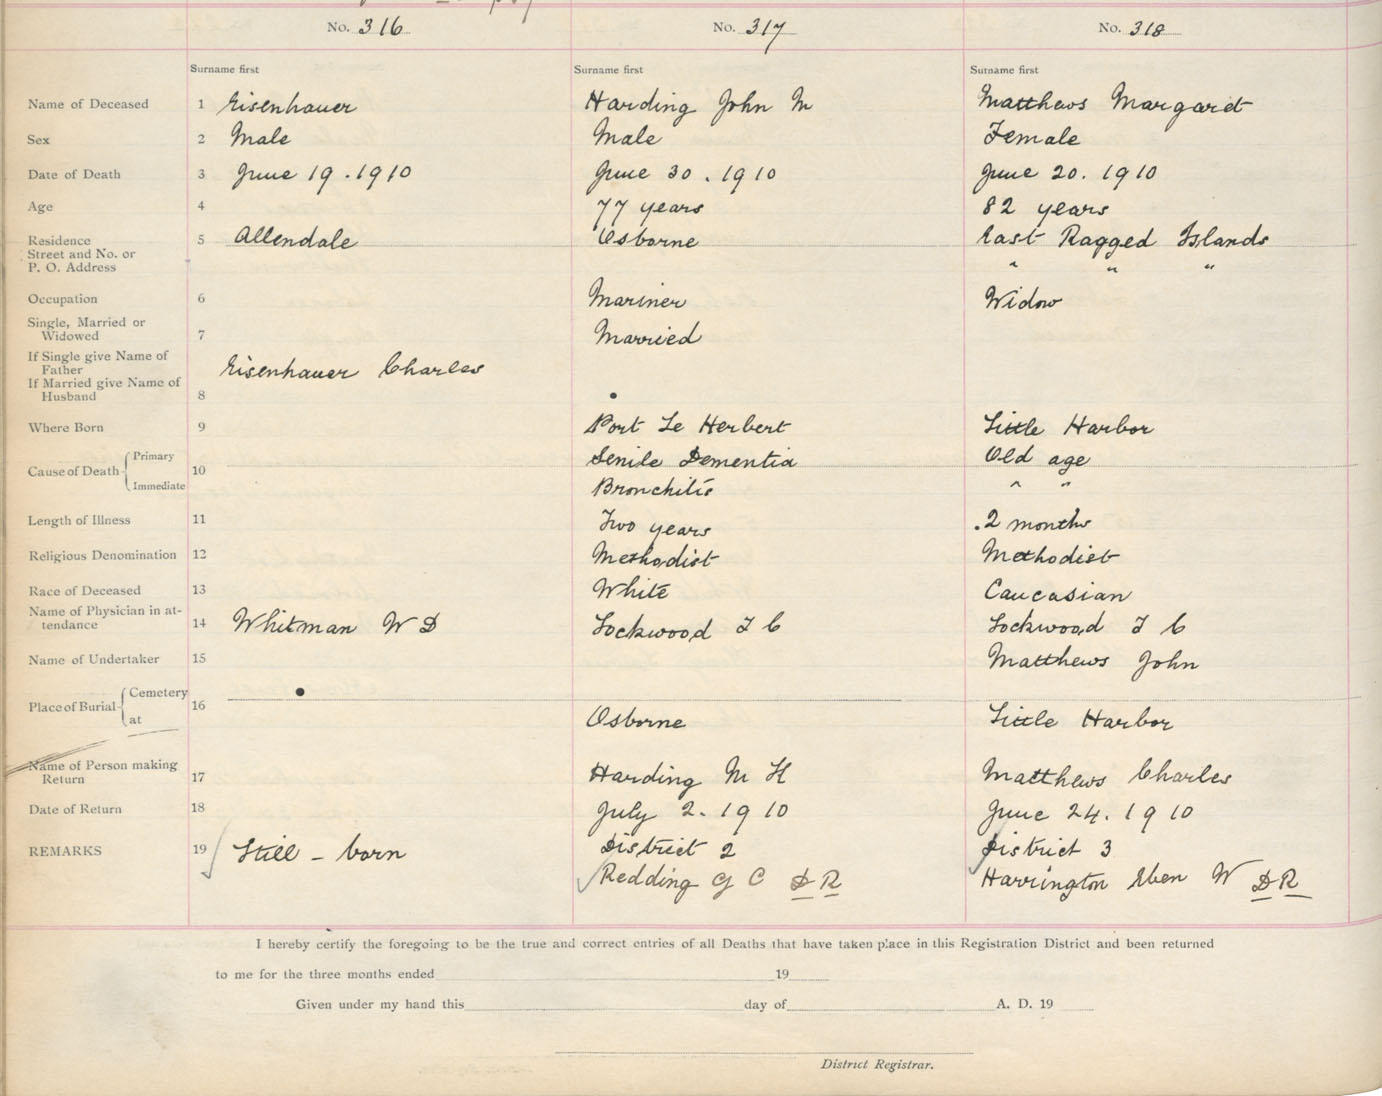 No. 316 No. 317 No. 318
Surname first Surname first Surname first
Name of Deceased 1 Eisenhauer Harding John M Matthews Margaret
Sex 2 Male Male Female
Date of Death 3 June 19 . 1910 June 30 . 1910 June 20 . 1910
Age 4 77 years 82 years
Residence 5 Allendale Osborne East Ragged Islands
Street and No. or
P. O. Address " " "
Occupation 6 Mariner Widow
Single, Married or
Widowed 7 Married
If Single give Name of
Father Eisenhauer Charles
If Married give Name of
Husband 8
Where Born 9 Port Le Herbert Little Harbor
Cause of Death 10 Primary Senile Dementia Old age
Immediate Bronchitis " "
Length of Illness 11 Two years 2 months
Religious Denomination 12 Methodist Methodist
Race of Deceased 13 White Caucasian
Name of Physician in at-
tendance 14 Whitman W D Lockwood T C Lockwood T C
Name of Undertaker 15 Matthews John
Place of Burial 16 Cemetery
at Osborne Little Harbor
Name of Person making
Return 17 Harding M H Matthews Charles
Date of Return 18 July 2 . 1910 June 24 . 1910
REMARKS 19 Still - born District 2 District 3
Redding G C D R Harrington Eben W D R
I hereby certify the foregoing to be the true and correct entries of all Deaths that have taken place in this Registration District and been returned
to me for the three months ended 19
Given under my hand this day of A. D. 19
District Registrar.